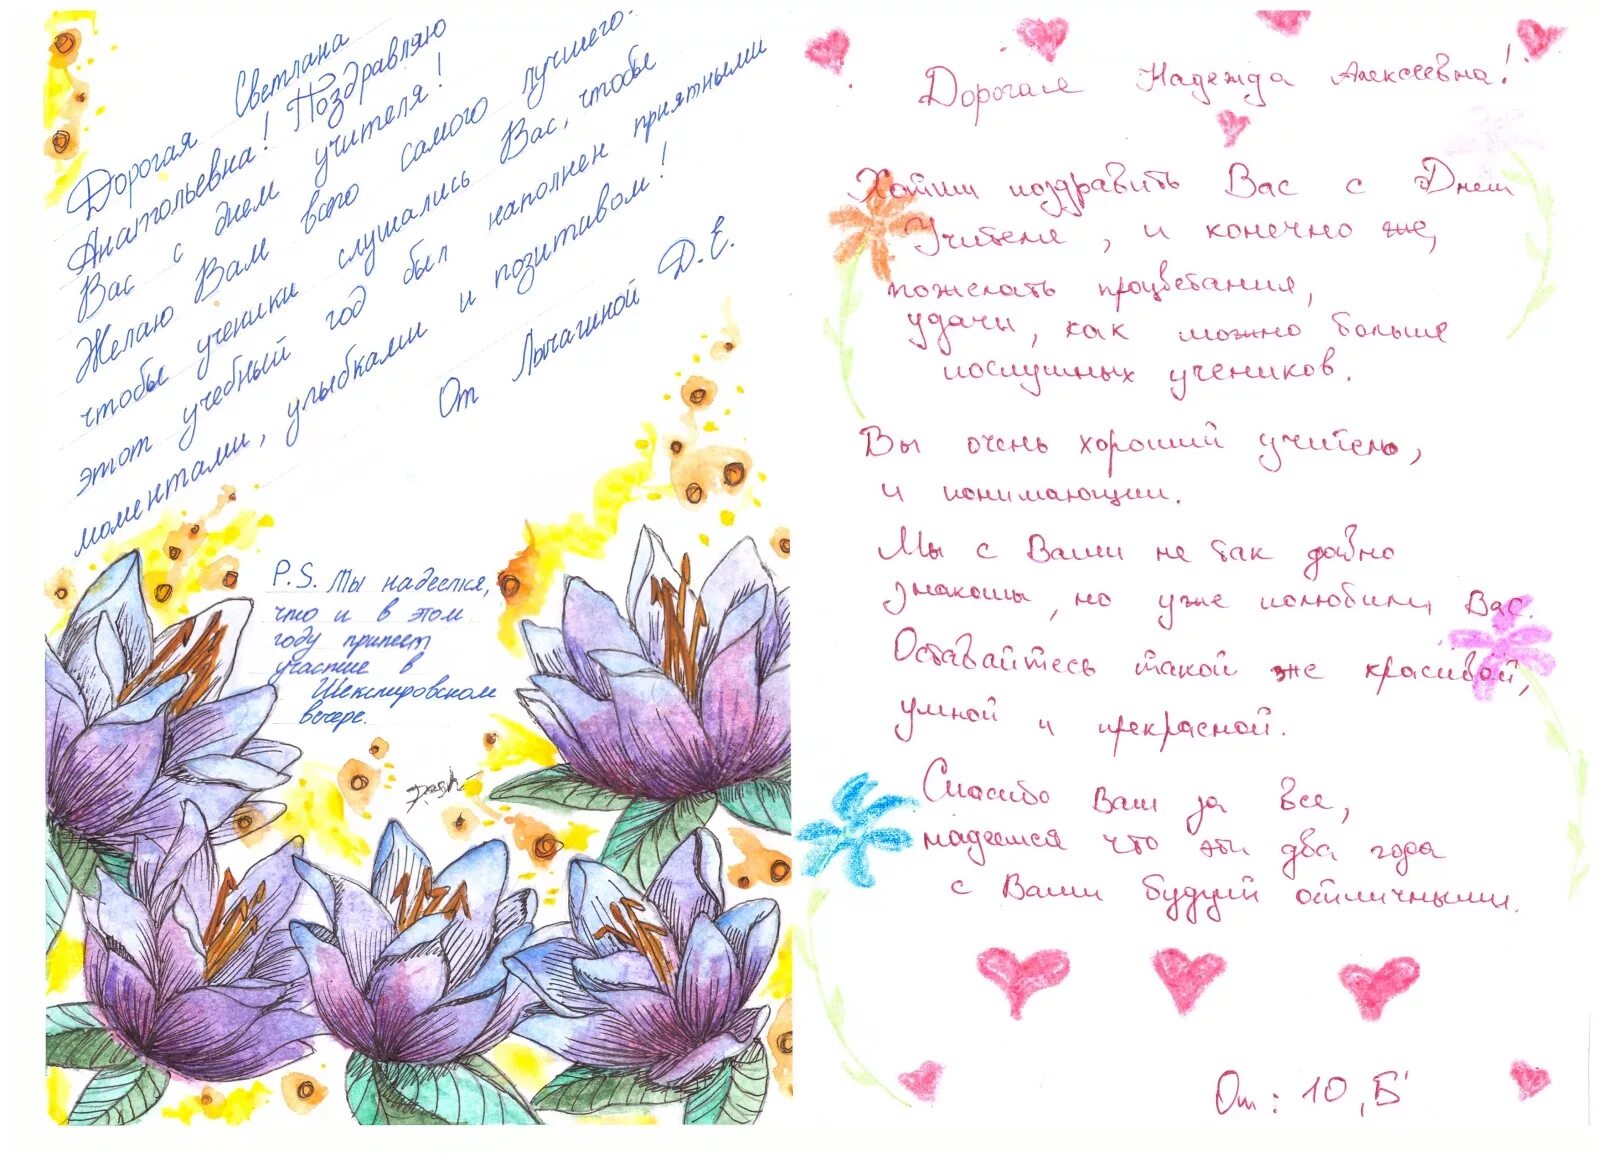 Дорогая Светлана
Анатольевна! Поздравляю
Вас с днем учителя!
Желаю Вам всего самого лучшего.
чтобы ученики слушались Вас, чтобы
этот учебный год был наполнен приятными
моментами, улыбками и позитивом!
От Лычагиной Д.Е.
P.S. Мы надеемся,
что и в этом
году примем
участие в
Шекспировском
вечере.
Dash
Дорогая Надежда Алексеевна!
Хотим поздравить Вас с Днем
Учителя, и конечно же,
пожелать процветания,
удачи, как можно больше
послушных учеников.
Вы очень хороший учитель,
и понимающий.
Мы с Вами не так давно
знакомы, но уже полюбили Вас.
Оставайтесь такой же красивой,
умной и прекрасной.
Спасибо Вам за все,
надеемся что эти два года
с Вами будут отличными.
От: 10 „Б“